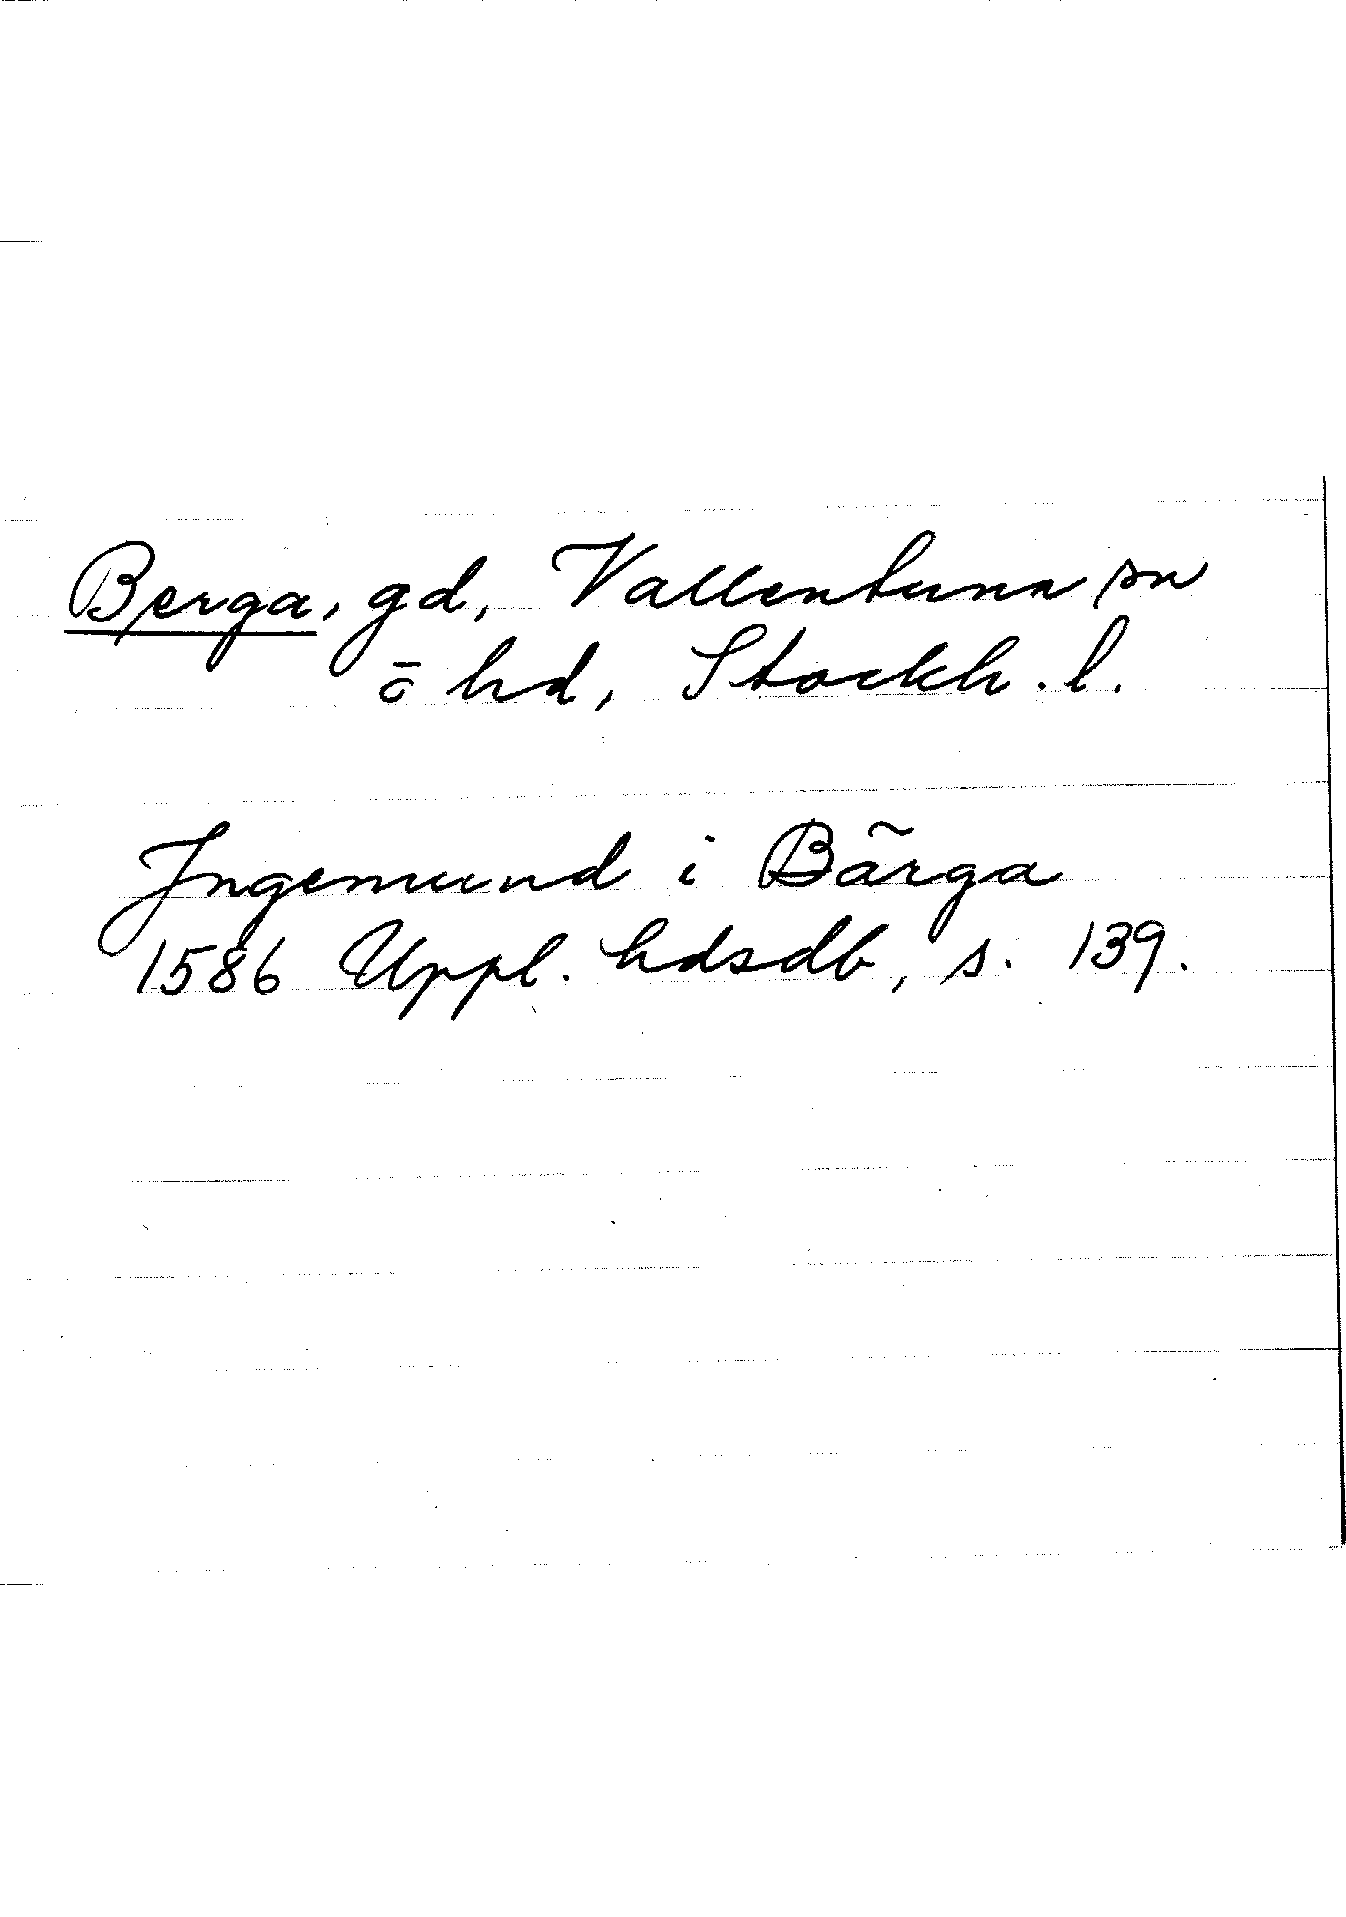 Berga, gd, Vallentuna sn
ö hd, Stockh. l.
Ingemund i Bärga
1586 Uppl. hdsdb, s. 139.